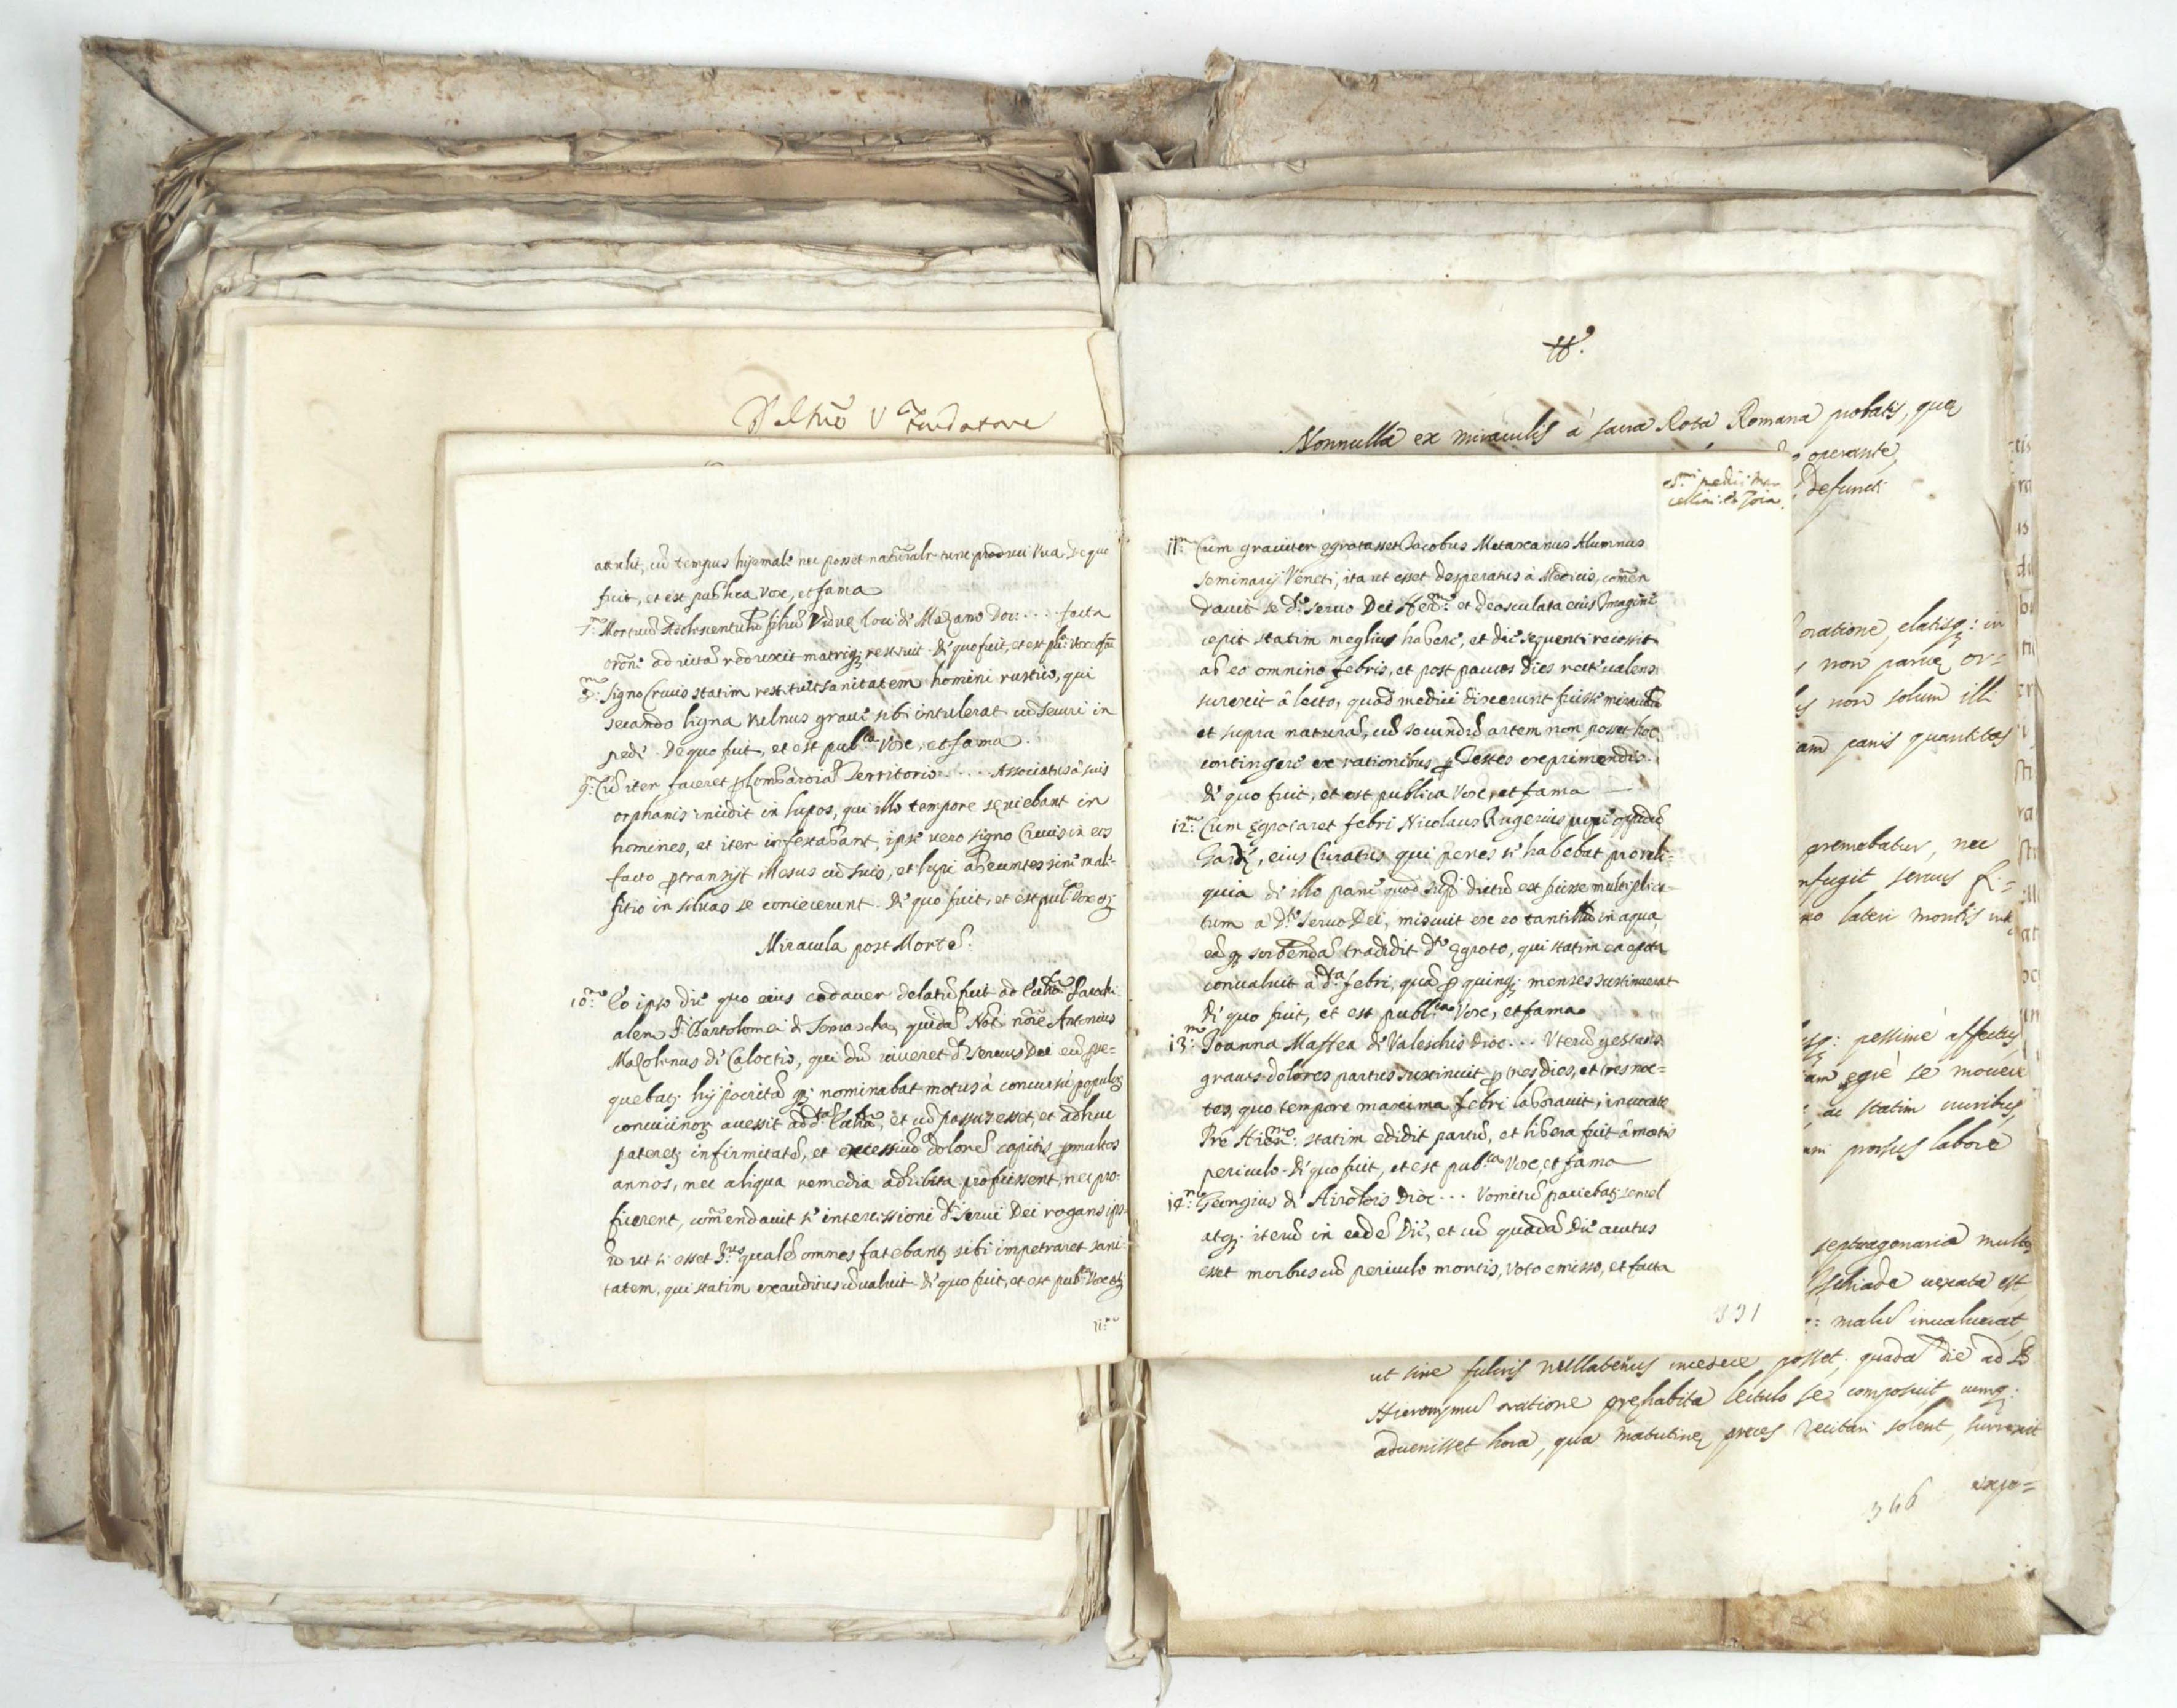 Del N͞ro V. Fundatore
auulit, cũ tempus hyemale nec posset nãlr tunc produci Vua. De quo
fuit, et est publica Vox, et fama
7.m Mortuũ Adolescentulũ filiũ Viduę loci de Mazano Doc: . . . . facta
orõne ad uitã reduxit matriq; restituit. De quo fuit, et est pu: Vox et fa
8.m Signo Crucis statim restituit sanitatem homini rustico, qui
secando ligna vulnus graue sibi intulerat cũ securi in
pede. De quo fuit, et est publ.ca Vox, et fama.
9.m Cũ iter faceret p Lombardiã Territorio . . . . . Associatus à suis
orphanis incidit in lupos, qui illo tempore sęuiebant in
homines, et iter infestabant, ipse uero signo Crucis in eos
facto ptransijt illesus cũ suis, et lupi abeuntes sine male-
fitio in siluas se coniecerunt. De quo fuit, et est pub: Vox etc;
Miracula post Mortẽ.
10.m Eo ipso die quo eius cadauer delatũ fuit ad Eccliã Parochi
alem S. Bartolomei de Somascha, quidã Nob. nõie Antonius
Mazolenus de Caloctio, qui dũ uiueret ds Seruus Dei eũ spe=
quebat; hypocritã q; nominabat motus à concursu populor;
conuicinor; accessit ad d.tã Eccliã, et cũ passus esset, et adhuc
pateret; infirmitatẽ, et excessiuũ dolorẽ capitis p multos
annos, nec aliqua remedia adhibita profuissent, nec pro-
ficerent, cõmendauit se intercessioni di Serui Dei rogans ips-
ũ ut si esset S.tus qualẽ omnes fatebant; sibi impetraret sani-
tatem, qui statim exauditus cõualuit. De quo fuit, et est pub.ca Vox etc;
11.m
tt.
Nonnulla ex miraculis à sacra Rota Romana probatis, quę
operante
defuncti
11.m Cum grauiter egrotasset Jacobus Metaxanus Alumnus
Seminarij Veneti, ita ut esset desperatus à Medicis, comẽn
dauit se d.to Seruo Dei Hier.mo et deosculata eius Imagine
cepit statim meglius habere, et die sequenti recessit
ab eo omnino febris, et post paucos dies recte ualens
surexit à lecto, quod medici dixerunt fuisse miraculũ
et supra naturã, cũ secundũ artem non posset hoc
contingere ex rationibus p Testes exprimendis.
De quo fuit, et est publica Vox, et fama —
12.m Cum Egrotaret febri Nicolaus Rugerius pope oppidũ
Gardę, eius Curatus qui penes se habebat pro reli-
quia de illo pane quod sup. dictũ est fuisse multiplica-
tum a d.to Seruo Dei, miscuit ex eo tantillũ in aqua,
eã q; sorbendã tradidit d.to Egroto, qui statim ea epota
conualuit a d.ta febri, quã p quinq; menses sustinuerat
De quo fuit, et est publ.ca Vox, et fama
13.m Joanna Maffea de Valeschis Dioc . . . Uterũ gestans
graues dolores partus sustinuit p tres dies, et tres noc=
tes, quo tempore maxima febri laborauit, inuocato
Pré Hier.mo statim edidit partũ, et libera fuit à mortis
periculo. De quo fuit, et est pub.ca Vox, et fama
14.m Georgius de Airoldis Dioc . . . Vomitũ paciebat; semel
atq; iterũ in eadẽ die, et cũ quadã die auctus
esset morbus cũ periculo mortis, Voto emisso, et facta
331
oratione, elatisq: in
non paruę or=
non solum illi
panis quantitas
premebatur, nec
seruus
lateri montis
pessimè affectus
ęgrè se mouere
ac statim uiribus
prorsus labore
septuagenaria multos
uexata est
malũ inualuerat
ut sine fulcris incedere posset; quadã die ad B
Hieronymũ oratione pręhabita lectulo se composuit, cumq:
aduenisset hora, qua matutinę preces recitari solent, surrexit
expe=
346